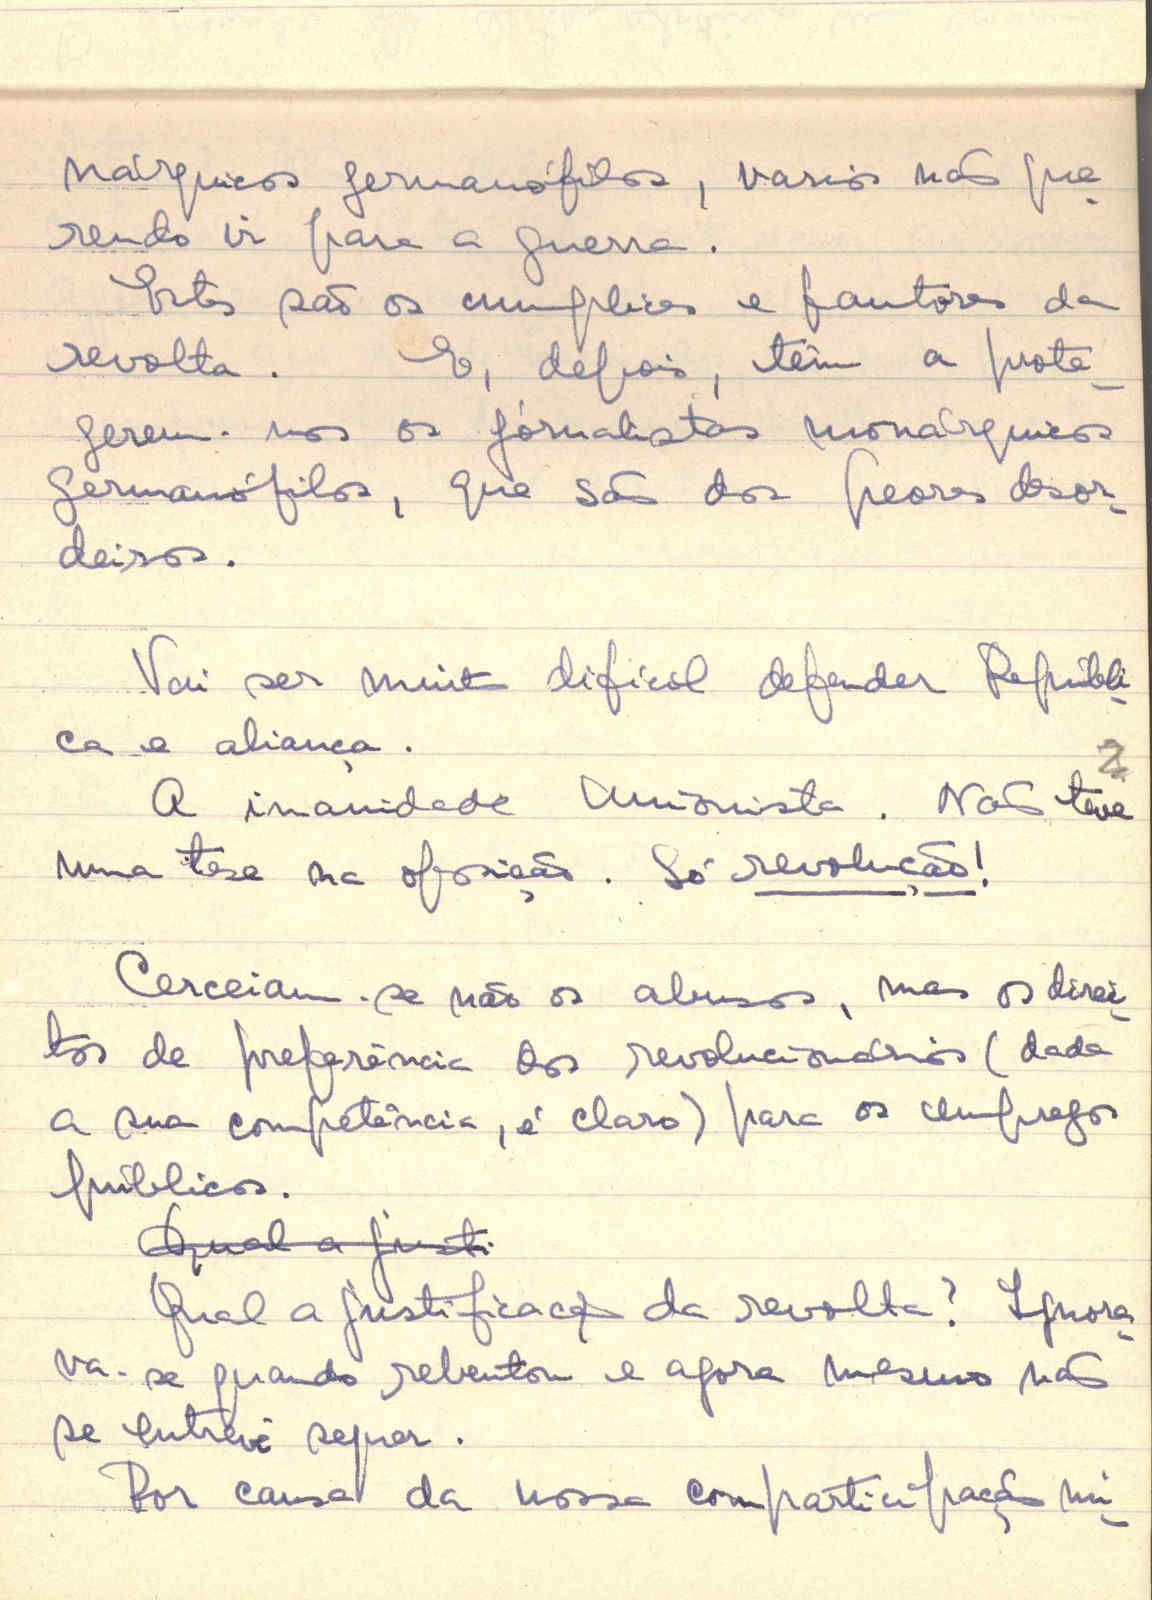 nárquicos germanófilos, varios não que-
rendo ir para a guerra.
Estes são os cumplices e fautores da
revolta. E, depois, têm a prote-
gerem-nos os jornalistas monárquicos
germanófilos, que são dos peores desor-
deiros.
Vai ser muito dificil defender Repúbli-
ca e aliança.
2
A inanidade Unionista. Não teve
uma tese na oposição. Só revolução!
Cerceiam-se não os abusos, mas os direi-
tos de preferência dos revolucionários (dada
a sua competência, é claro) para os empregos
públicos.
Qual a justi
Qual a justificação da revolta? Ignora-
va-se quando rebentou e agora mesmo não
se entrevê sequer.
Por causa da nossa comparticipação mi-